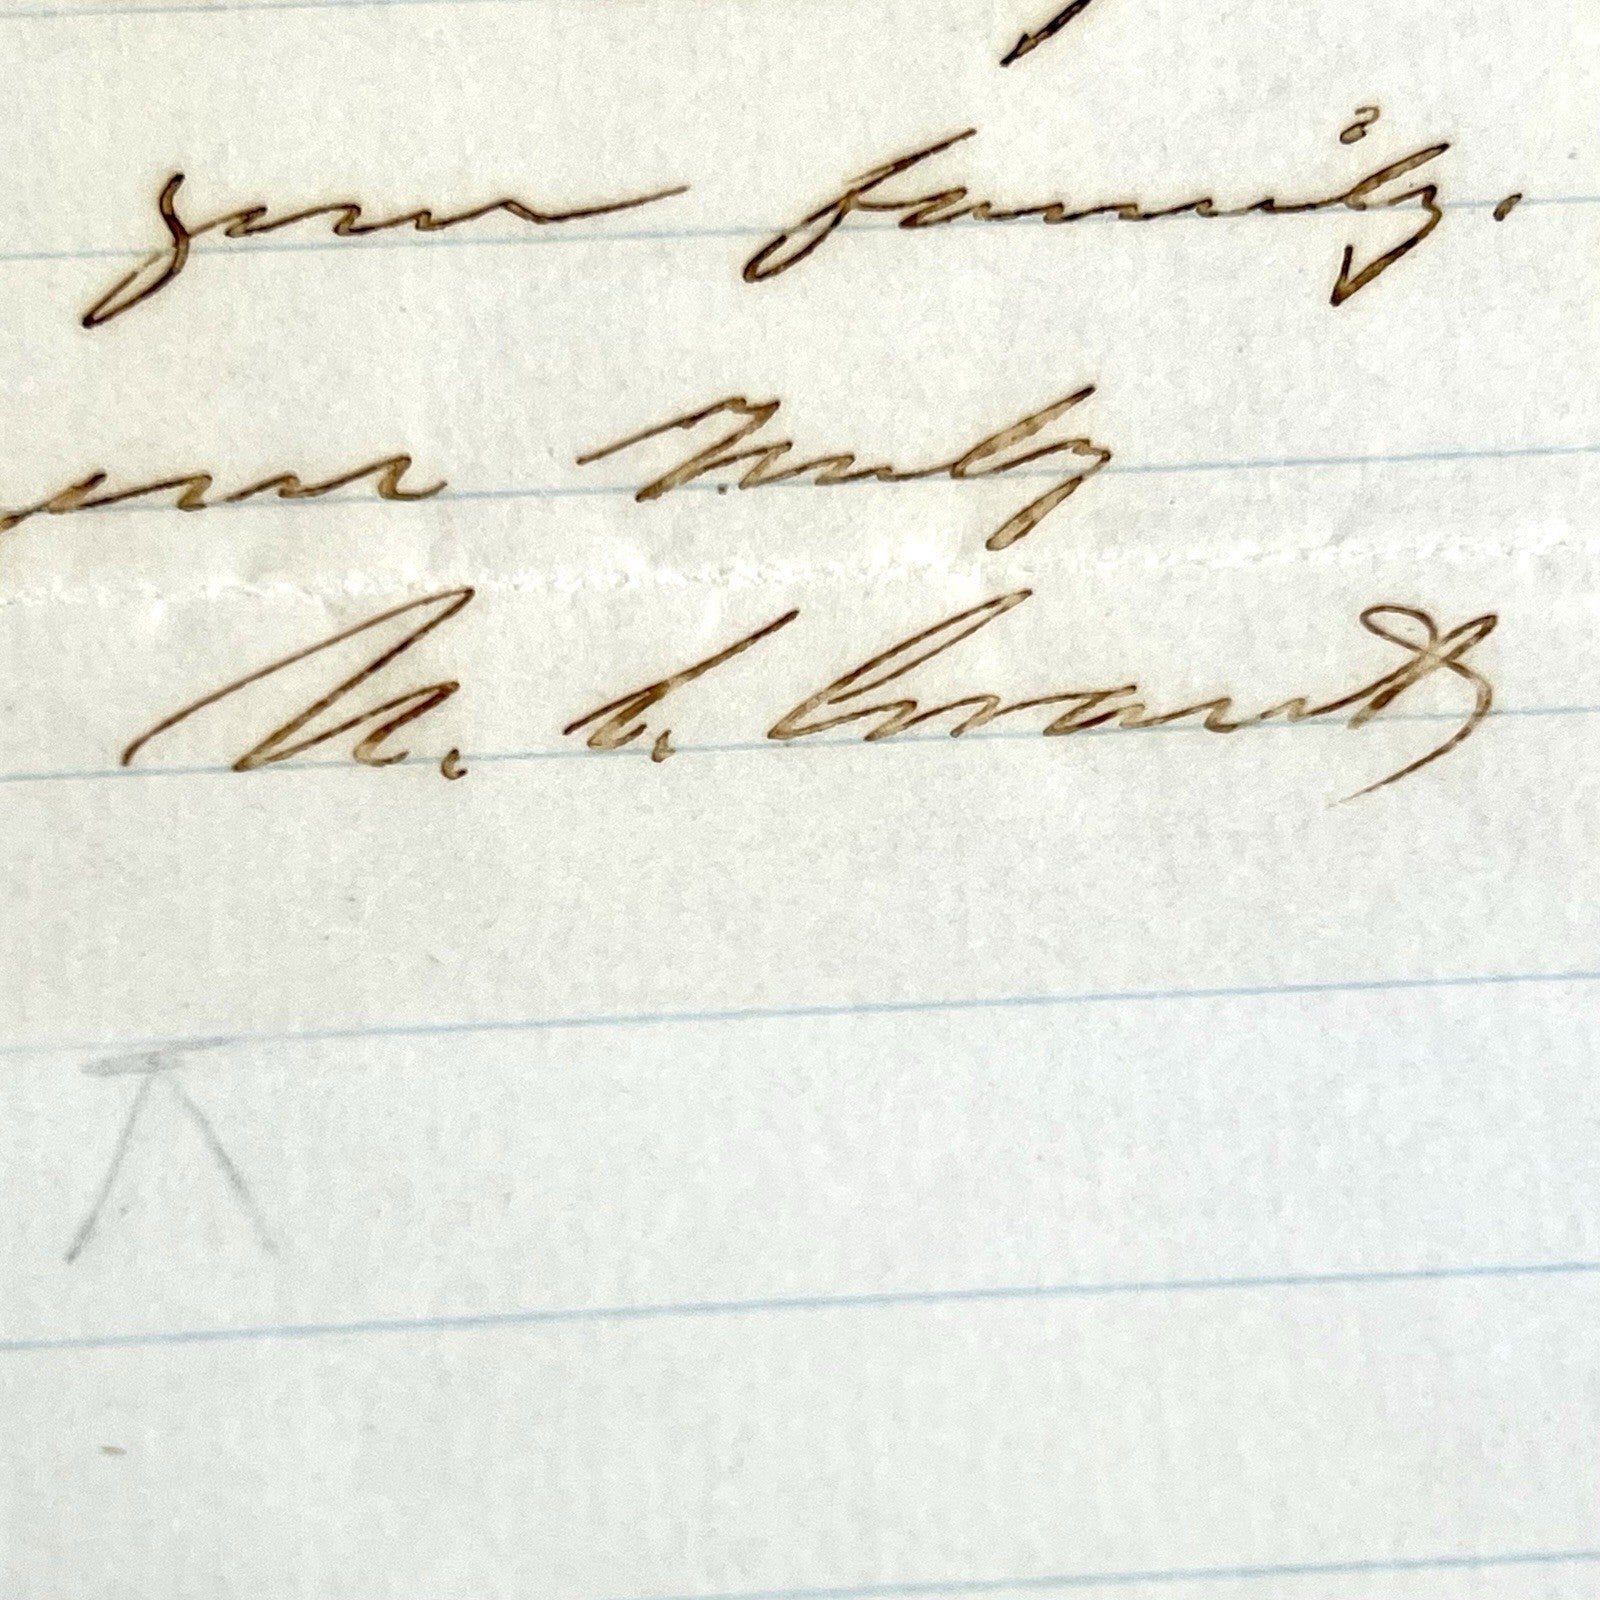 your family.
ours Truly
U. S. Grant